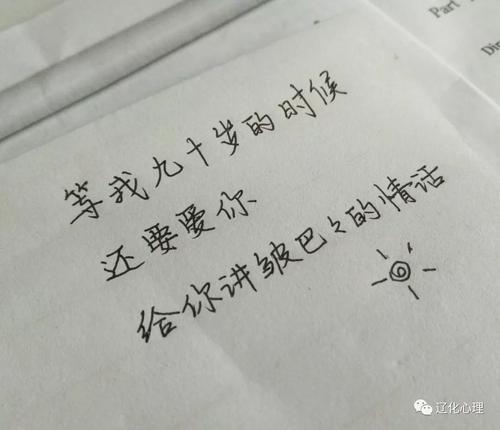 等我九十岁的时候
还要爱你
给你讲皱巴々的情话
Part
Di
辽化心理